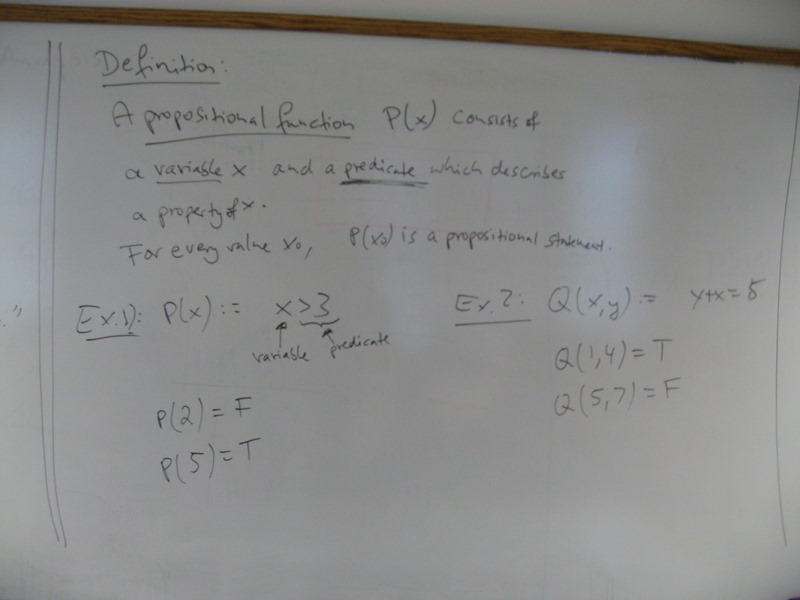 Definition:
A propositional function P(x) consists of
a variable x and a predicate which describes
a property of x.
For every value x₀, P(x₀) is a propositional statement.
Ex.1): P(x) := x>3
variable predicate
P(2) = F
P(5) = T
Ex.2: Q(x,y) := y+x=5
Q(1,4) = T
Q(5,7) = F